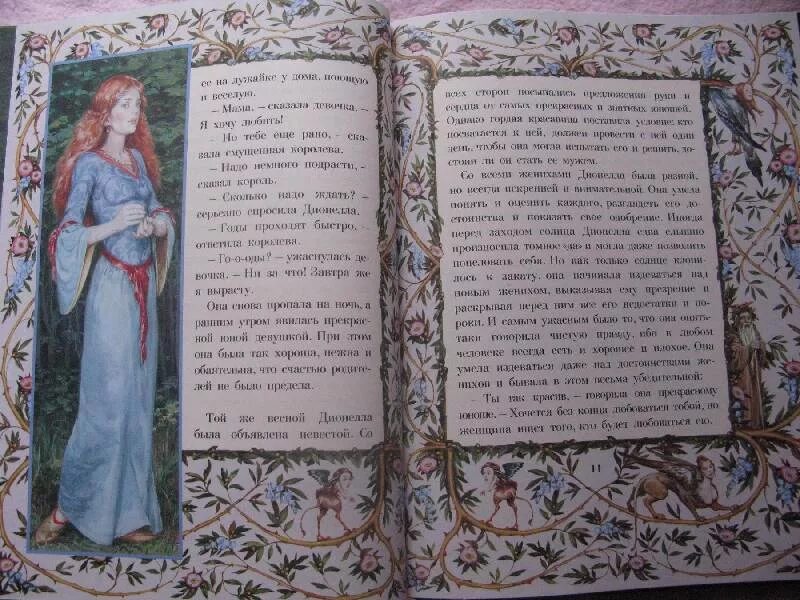 ее на лужайке у дома, поющую
и веселую.
— Мама, — сказала девочка. —
Я хочу любить!
— Но тебе еще рано, — ска-
зала смущенная королева.
— Надо немного подрасти, —
сказал король.
— Сколько надо ждать? —
серьезно спросила Дионелла.
— Годы проходят быстро, —
ответила королева.
— Го-о-оды? — ужаснулась де-
вочка. — Ни за что! Завтра же
я вырасту.
Она снова пропала на ночь, а
ранним утром явилась прекрас-
ной юной девушкой. При этом
она была так хороша, нежна и
обаятельна, что счастью родите-
лей не было предела.
Той же весной Дионелла
была объявлена невестой. Со
всех сторон посыпались предложения руки и
сердца от самых прекрасных и знатных юношей.
Однако гордая красавица поставила условие: кто
посватается к ней, должен провести с ней один
день, чтобы она могла испытать его и решить, до-
стоин ли он стать ее мужем.
Со всеми женихами Дионелла была разной,
но всегда искренней и внимательной. Она умела
понять и оценить каждого, разглядеть его до-
стоинства и показать свое одобрение. Иногда
перед заходом солнца Дионелла едва слышно
произносила томное «да» и могла даже позволить
поцеловать себя. Но как только солнце клони-
лось к закату, она начинала издеваться над
новым женихом, выказывая ему презрение и
раскрывая перед ним все его недостатки и по-
роки. И самым ужасным было то, что она опять-
таки говорила чистую правду, ибо в любом
человеке всегда есть и хорошее и плохое. Она
умела издеваться даже над достоинствами же-
нихов и бывала в этом весьма убедительной:
— Ты так красив, — говорила она прекрасному
юноше. — Хочется без конца любоваться тобой, но
женщина ищет того, кто будет любоваться ею.
11